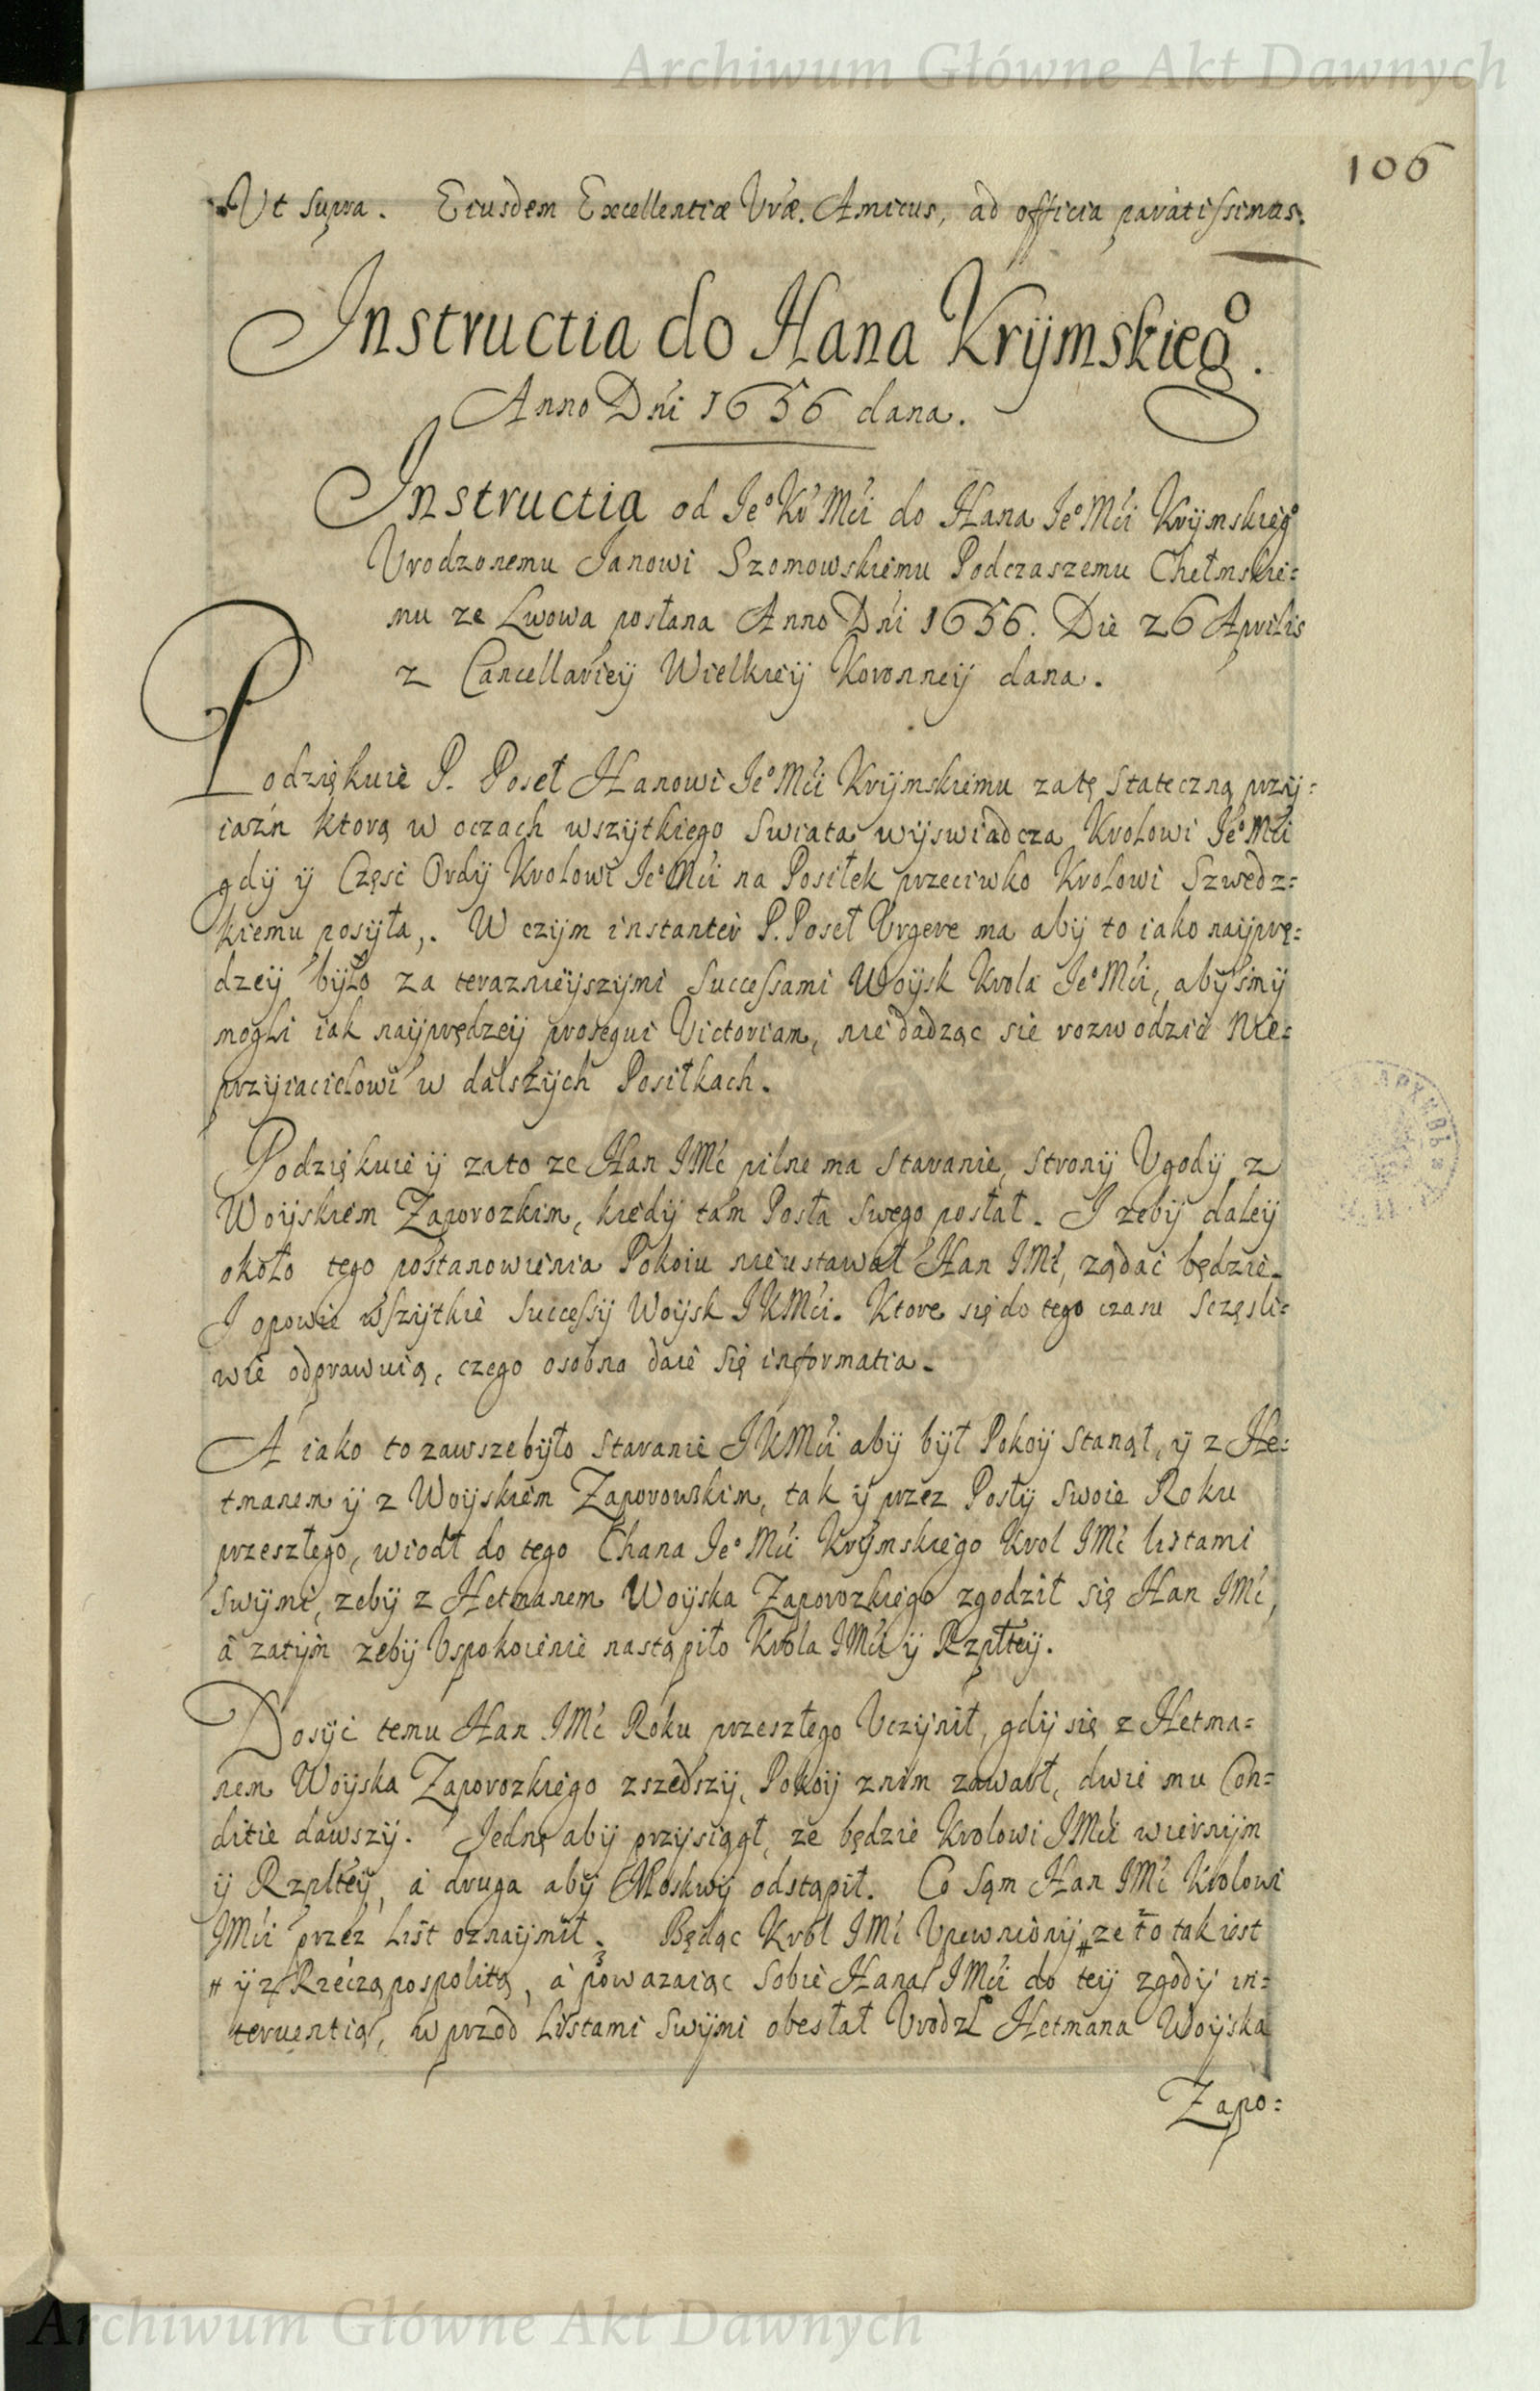 Archiwum Główne Akt Dawnych
106
Ut supra. Eiusdem Excellentiæ Vræ. Amicus, ad officia paratissimus.
Instructia do Hana Krÿmskieg°.
Anno Dńi 1656 dana.
Instructia od Je° Kr Mći do Hana Je° Mći Krÿmskieg°
Vrodzonemu Janowi Szomowskiemu Podczaszemu Chełmskie=
mu ze Lwowa posłana Anno Dńi 1656. Die 26 Aprilis
z Cancellarieÿ Wielkieÿ Koronneÿ dana.
Podziękuie P. Poseł Hanowi Je° Mći Krÿmskiemu zatę stateczną przÿ=
iaźn ktorą w oczach wszÿtkiego swiata wÿswiadcza Krolowi Je° Mći
gdÿ ÿ Częsć Ordÿ Krolowi Je° Mći na Posiłek przeciwko Krolowi Szwedz=
kiemu posÿła,. W czÿm instanter P. Poseł Vrgere ma abÿ to iako naÿprę=
dzeÿ bÿło za teraznieÿszÿmi Successami Woÿsk Krola Je° Mći, abÿsmÿ
mogli iak naÿprędzeÿ prosequi Victoriam, nie dadząc sie rozwodzić Nie=
przÿiacielowi w dalszÿch Posiłkach.
Podziękuie ÿ zato ze Han JMć pilne ma staranie, stronÿ Vgodÿ z
Woÿskiem Zaporozkim, kiedÿ tam Posła swego posłał. J zebÿ daleÿ
około tego postanowienia Pokoiu nieustawał Han JMć, ządać będzie.
J opowie wszÿtkie Successÿ Woÿsk JKMći. Ktore się do tego czasu sczęsli=
wie odprawuią, czego osobna daie się informatia.
A iako to zawsze bÿło staranie JKMći abÿ bÿł Pokoÿ stanął, ÿ z He=
tmanem ÿ z Woÿskiem Zaporowskim, tak ÿ przez Posłÿ swoie Roku
przeszłego, wiodł do tego Chana Je° Mći Krÿmskiego Krol JMć listami
swÿmi, zebÿ z Hetmanem Woÿska Zaporozkiego zgodził się Han JMć,
à zatÿm zebÿ Vspokoienie nastąpiło Krola JMći ÿ Rzpłteÿ.
Dosÿć temu Han JMć Roku przeszłego Vczÿnił, gdÿ się z Hetma=
nem Woÿska Zaporozkiego zszedszÿ, Pokoÿ znim zawarł, dwie mu Con=
ditie dawszÿ. Jednę abÿ przÿsiągł, ze będzie Krolowi JMći wiernÿm
ÿ Rzplteÿ, á druga abÿ Moskwÿ odstąpił. Co sąm Han JMć Krolowi
JMći przez List oznaÿmił. Będąc Krol JMć Vpewnionÿ, # ze to tak iest
# ÿ z Rzeczą pospolitą, à powazaiąc sobie Hana JMći do teÿ zgodÿ in=
teruentią, wprzod Listami swÿmi obesłał Vrodzł Hetmana Woÿska
Zapo=
Archiwum Główne Akt Dawnych